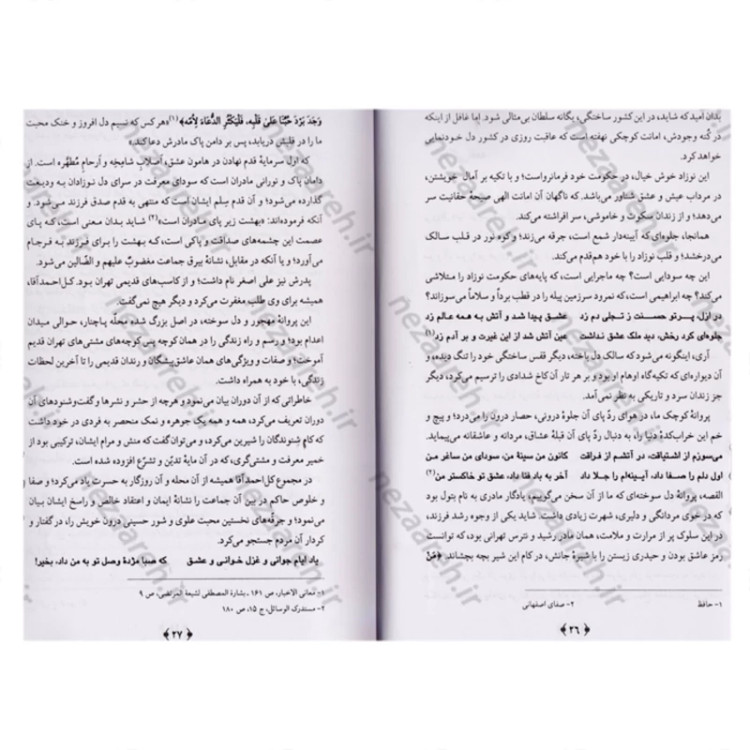 بدان آمید که شاید، در این کشور ساختگی، یگانه سلطان بی‌مثالی شود. اما غافل از اینکه
در کُنه وجودش، امانت کوچکی نهفته است که عاقبت روزی در کشور دل خودنمایی
خواهد کرد.
این نوزاد خوش خیال، در حکومت خود فرمانرواست؛ و با تکیه بر آمال خویشتن،
در مرداب عیش و عشق شناور می‌باشد. که ناگهان آن امانت الهی صیحهٔ حقانیت سر
می‌دهد؛ و از زندان سکوت و خاموشی، سر افراشته می‌کند.
همانجا، جلوه‌ای که آیینه‌دار شمع است، جرقه می‌زند؛ و کوه نور در قلب سالک
می‌درخشد؛ و قلب نوزاد را با خود هم‌قدم می‌کند.
این چه سودایی است؟ چه ماجرایی است، که پایه‌های حکومت نوزاد را متلاشی
می‌کند؟ چه ابراهیمی است، که نمرود سرزمین پیله را در قطب برداً و سلاماً می‌سوزاند؟
در ازل پرتو حسنت ز تجلی دم زد عشق پیدا شد و آتش به همه عالم زد
جلوه‌ای کرد رخش، دید ملک عشق نداشت عین آتش شد از این غیرت و بر آدم زد(۱)
آری، اینگونه می‌شود که سالک دل باخته، دیگر قفس ساختگی خود را تنگ دیده، و
آن دیواره‌ای که تکیه‌گاه اوهام او بود و بر هر تار آن کاخ شدادی را ترسیم می‌کرد، دیگر
جز زندان سرد و تاریکی به نظر نمی‌آمد.
پروانهٔ کوچک ما، در هوای ردّ پای آن جلوهٔ درونی، حصار درون را می‌درد؛ و پیچ و
خم این خراب‌کدهٔ دنیا را، به دنبال ردّ پای آن قبلهٔ عشاق، مردانه و عاشقانه می‌پیماید.
می‌سوزم از اشتیاقت، در آتشم از فراقت کانون من سینهٔ من، سودای من ساغر من
اول دلم را صفا داد، آیینه‌ام را جلا داد آخر به باد فنا داد، عشق تو خاکستر من(۲)
القصه، پروانهٔ دل سوخته‌ای که ما از آن سخن می‌گوییم، یادگار مادری به نام بتول بود
که در خوی مردانگی و دلیری، شهرت زیادی داشت. شاید یکی از وجوه رشد فرزند،
در این سلوک پر از مرارت و ملامت، همان مادر رشید و نترس تهرانی بود، که توانست
رمز عاشق بودن و حیدری زیستن را با شیرهٔ جانش، در کام این شیر بچه بچشاند. «مَن
۱- حافظ ۲- صفای اصفهانی
۲۶
وَجَدَ بَرْدَ حُبِّنا عَلی قَلبِه، فَلْیُکثِرِ الدُّعاءَ لِأُمِّه»(۱) «هر کس که نسیم دل افروز و خنک محبت
ما را در قلبش دریابد، پس بر دامن پاک مادرش دعا کند.»
که اول سرمایهٔ قدم نهادن در هامون عشق، اصلاب شامِخه و اَرحام مُطَهَّره است. از
دامان پاک و نورانی مادران است که سودای معرفت در سرای دل نوزادان به ودیعت
گذارده می‌شود؛ و آن قدم سِلم ایشان است که منتهی به قدم صدق فرزند می‌شود. و
آنکه فرموده‌اند: «بهشت زیر پای مادران است»(۲) شاید بدان معنی است، که پای
عصمت این چشمه‌های صداقت و پاکی است، که بهشت را برای فرزند به فرجام
می‌آورد؛ و یا آنکه در مقابل، نشانهٔ بیرق جماعت مغضوب علیهم و الضّالین می‌شود.
پدرش نیز علی اصغر نام داشت؛ و از کاسب‌های قدیمی تهران بود. کل‌احمدآقا،
همیشه برای وی طلب مغفرت می‌کرد و دیگر هیچ نمی‌گفت.
این پروانهٔ مهجور و دل سوخته، در اصل بزرگ شده محلّه پاچنار، حوالی میدان
اعدام بود؛ و رسم و راه زندگی را در همان کوچه پس کوچه‌های مشتی‌های تهران قدیم
آموخت؛ و صفات و ویژگی‌های همان عاشق‌پیشگان و رندان قدیمی را تا آخرین لحظات
زندگی، با خود به همراه داشت.
خاطراتی که از آن دوران بیان می‌نمود و هرچه از حشر و نشرها و گفت‌وشنودهای آن
دوران تعریف می‌کرد، همه و همه یک جوهره و نمک منحصر به فردی در خود داشت،
که کام شنوندگان را شیرین می‌کرد، و می‌توان گفت که منش و مرام ایشان، ترکیبی بود از
خمیر معرفت و مشتی‌گری، که در آن مایهٔ تدیّن و تشرّع افزوده شده است.
در مجموع کل‌احمدآقا همیشه از آن محله و آن روزگار به حسرت یاد می‌کرد؛ و صفا
و خلوص حاکم در بین آن جماعت را نشانهٔ ایمان و اعتقاد خالص و راسخ ایشان بیان
می‌نمود؛ و جرقه‌های نخستین محبت علوی و شور حسینی درون خویش را، در گفتار و
کردار آن مردم جستجو می‌کرد.
یاد ایام جوانی و غزل خوانی و عشق که صبا مژدهٔ وصل تو به من داد، بخیر!
۱- معانی الاخبار، ص ۱۶۱، بشارة المصطفی لشیعة المرتضی، ص ۹
۲- مستدرک الوسائل، ج ۱۵، ص ۱۸۰
۲۷
nezaareh.ir